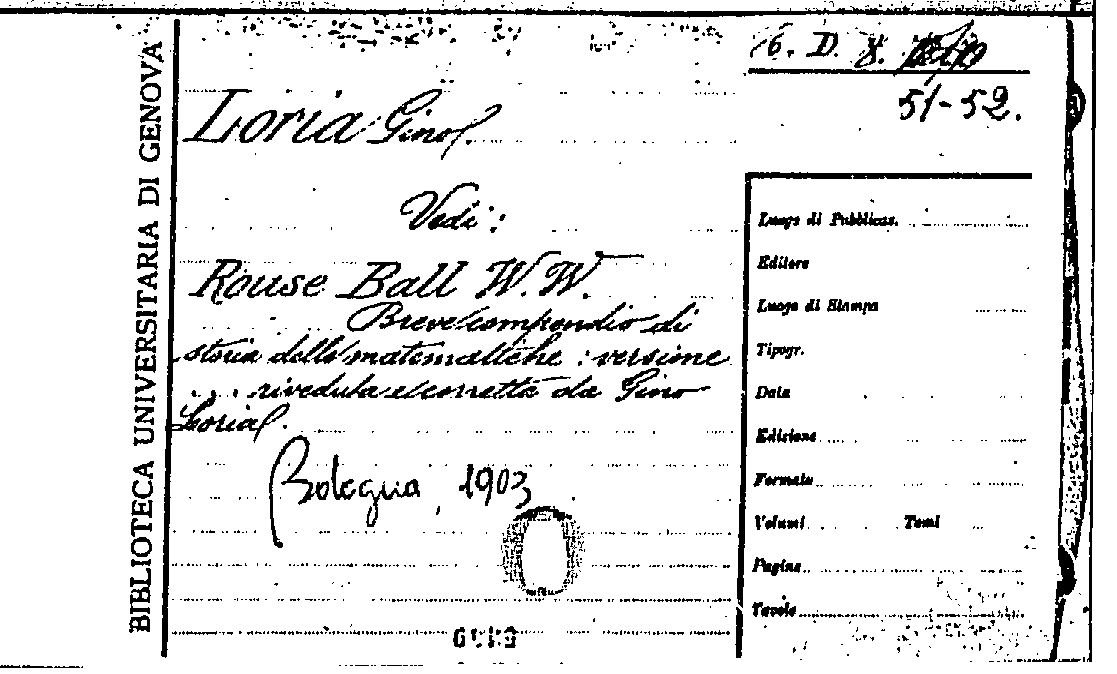 BIBLIOTECA UNIVERSITARIA DI GENOVA
6. D. 8.
51-52.
Loria Gino.
Vedi:
Rouse Ball W. W.
Breve compendio di
storia delle matematiche: versione
... riveduta e corretta da Gino
Loria.
Bologna, 1903
Luogo di Pubblicaz.
Editore
Luogo di Stampa
Tipogr.
Data
Edizione
Formato
Volumi Tomi
Pagine
Tavole